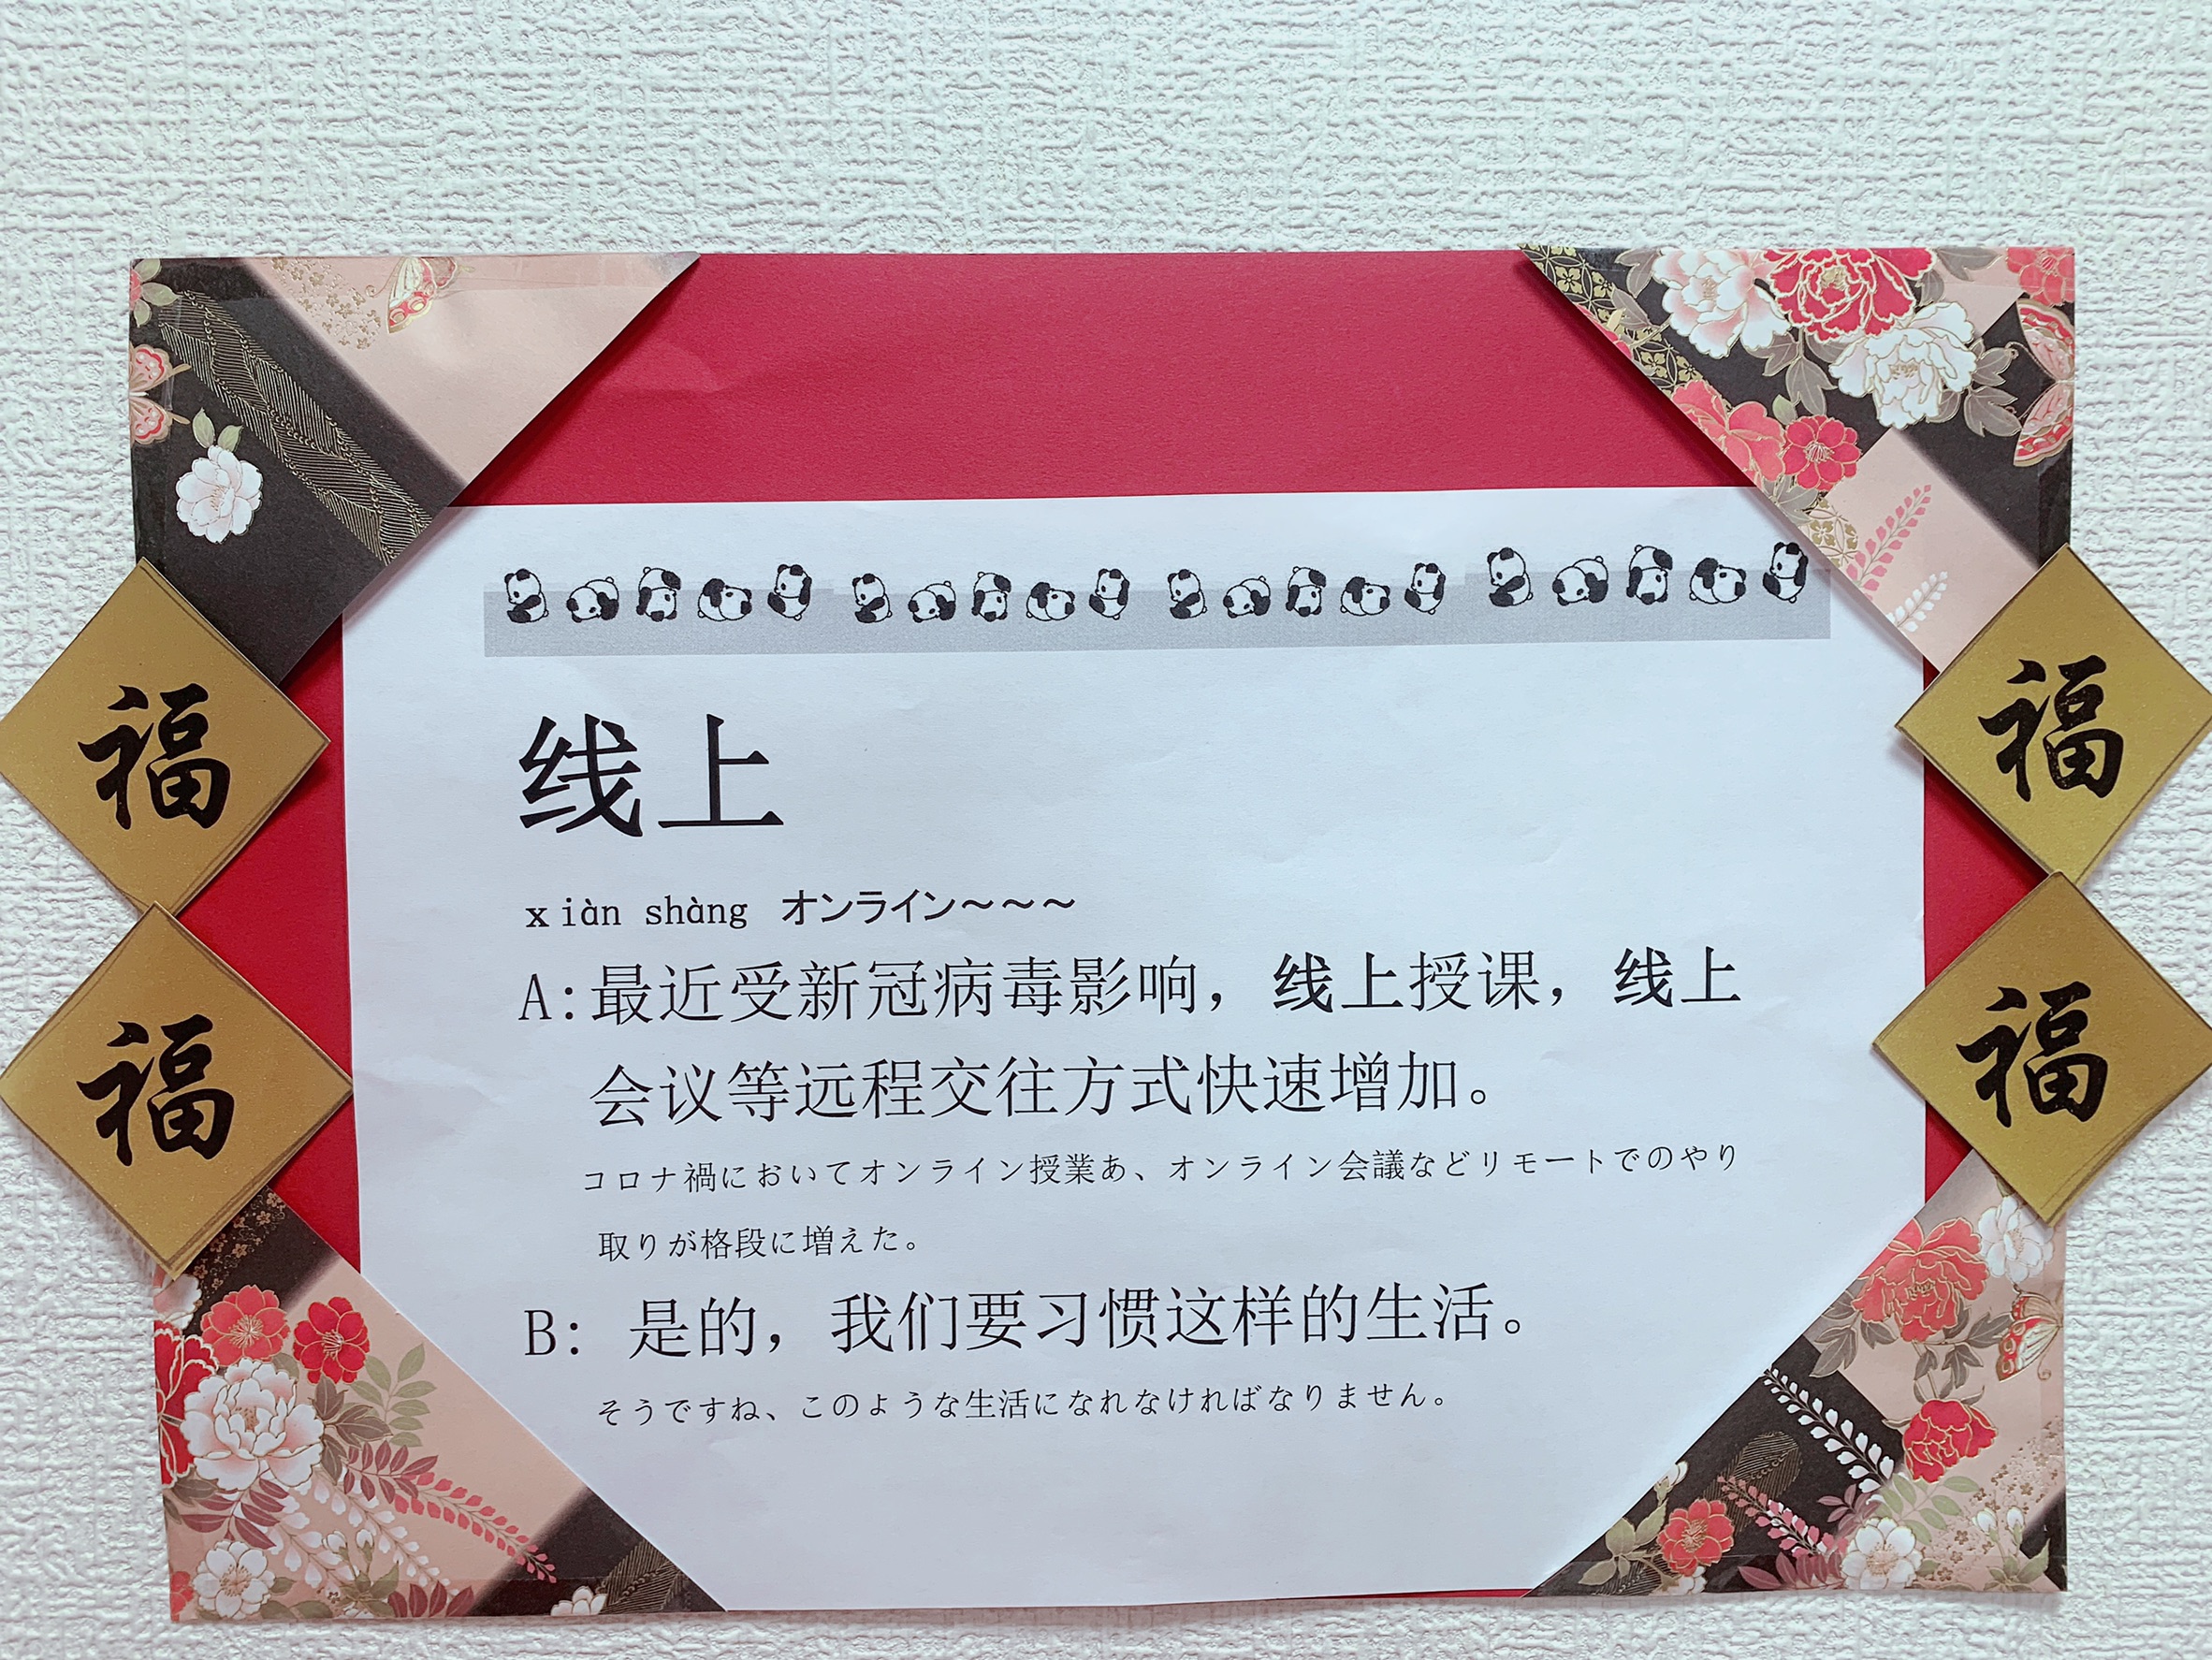 线上
xiàn shàng オンライン～～～
A:最近受新冠病毒影响，线上授课，线上
会议等远程交往方式快速增加。
コロナ禍においてオンライン授業あ、オンライン会議などリモートでのやり
取りが格段に増えた。
B: 是的，我们要习惯这样的生活。
そうですね、このような生活になれなければなりません。
福
福
福
福